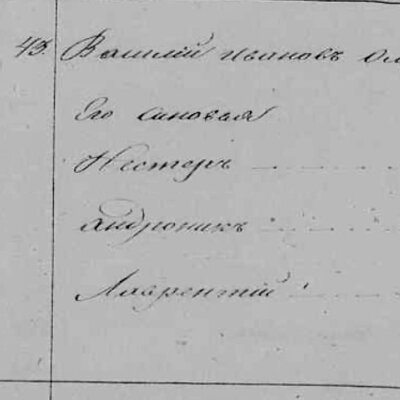 43. Василий Ивановъ
Его сыновья
Нестеръ
Андроникъ
Лаврентий